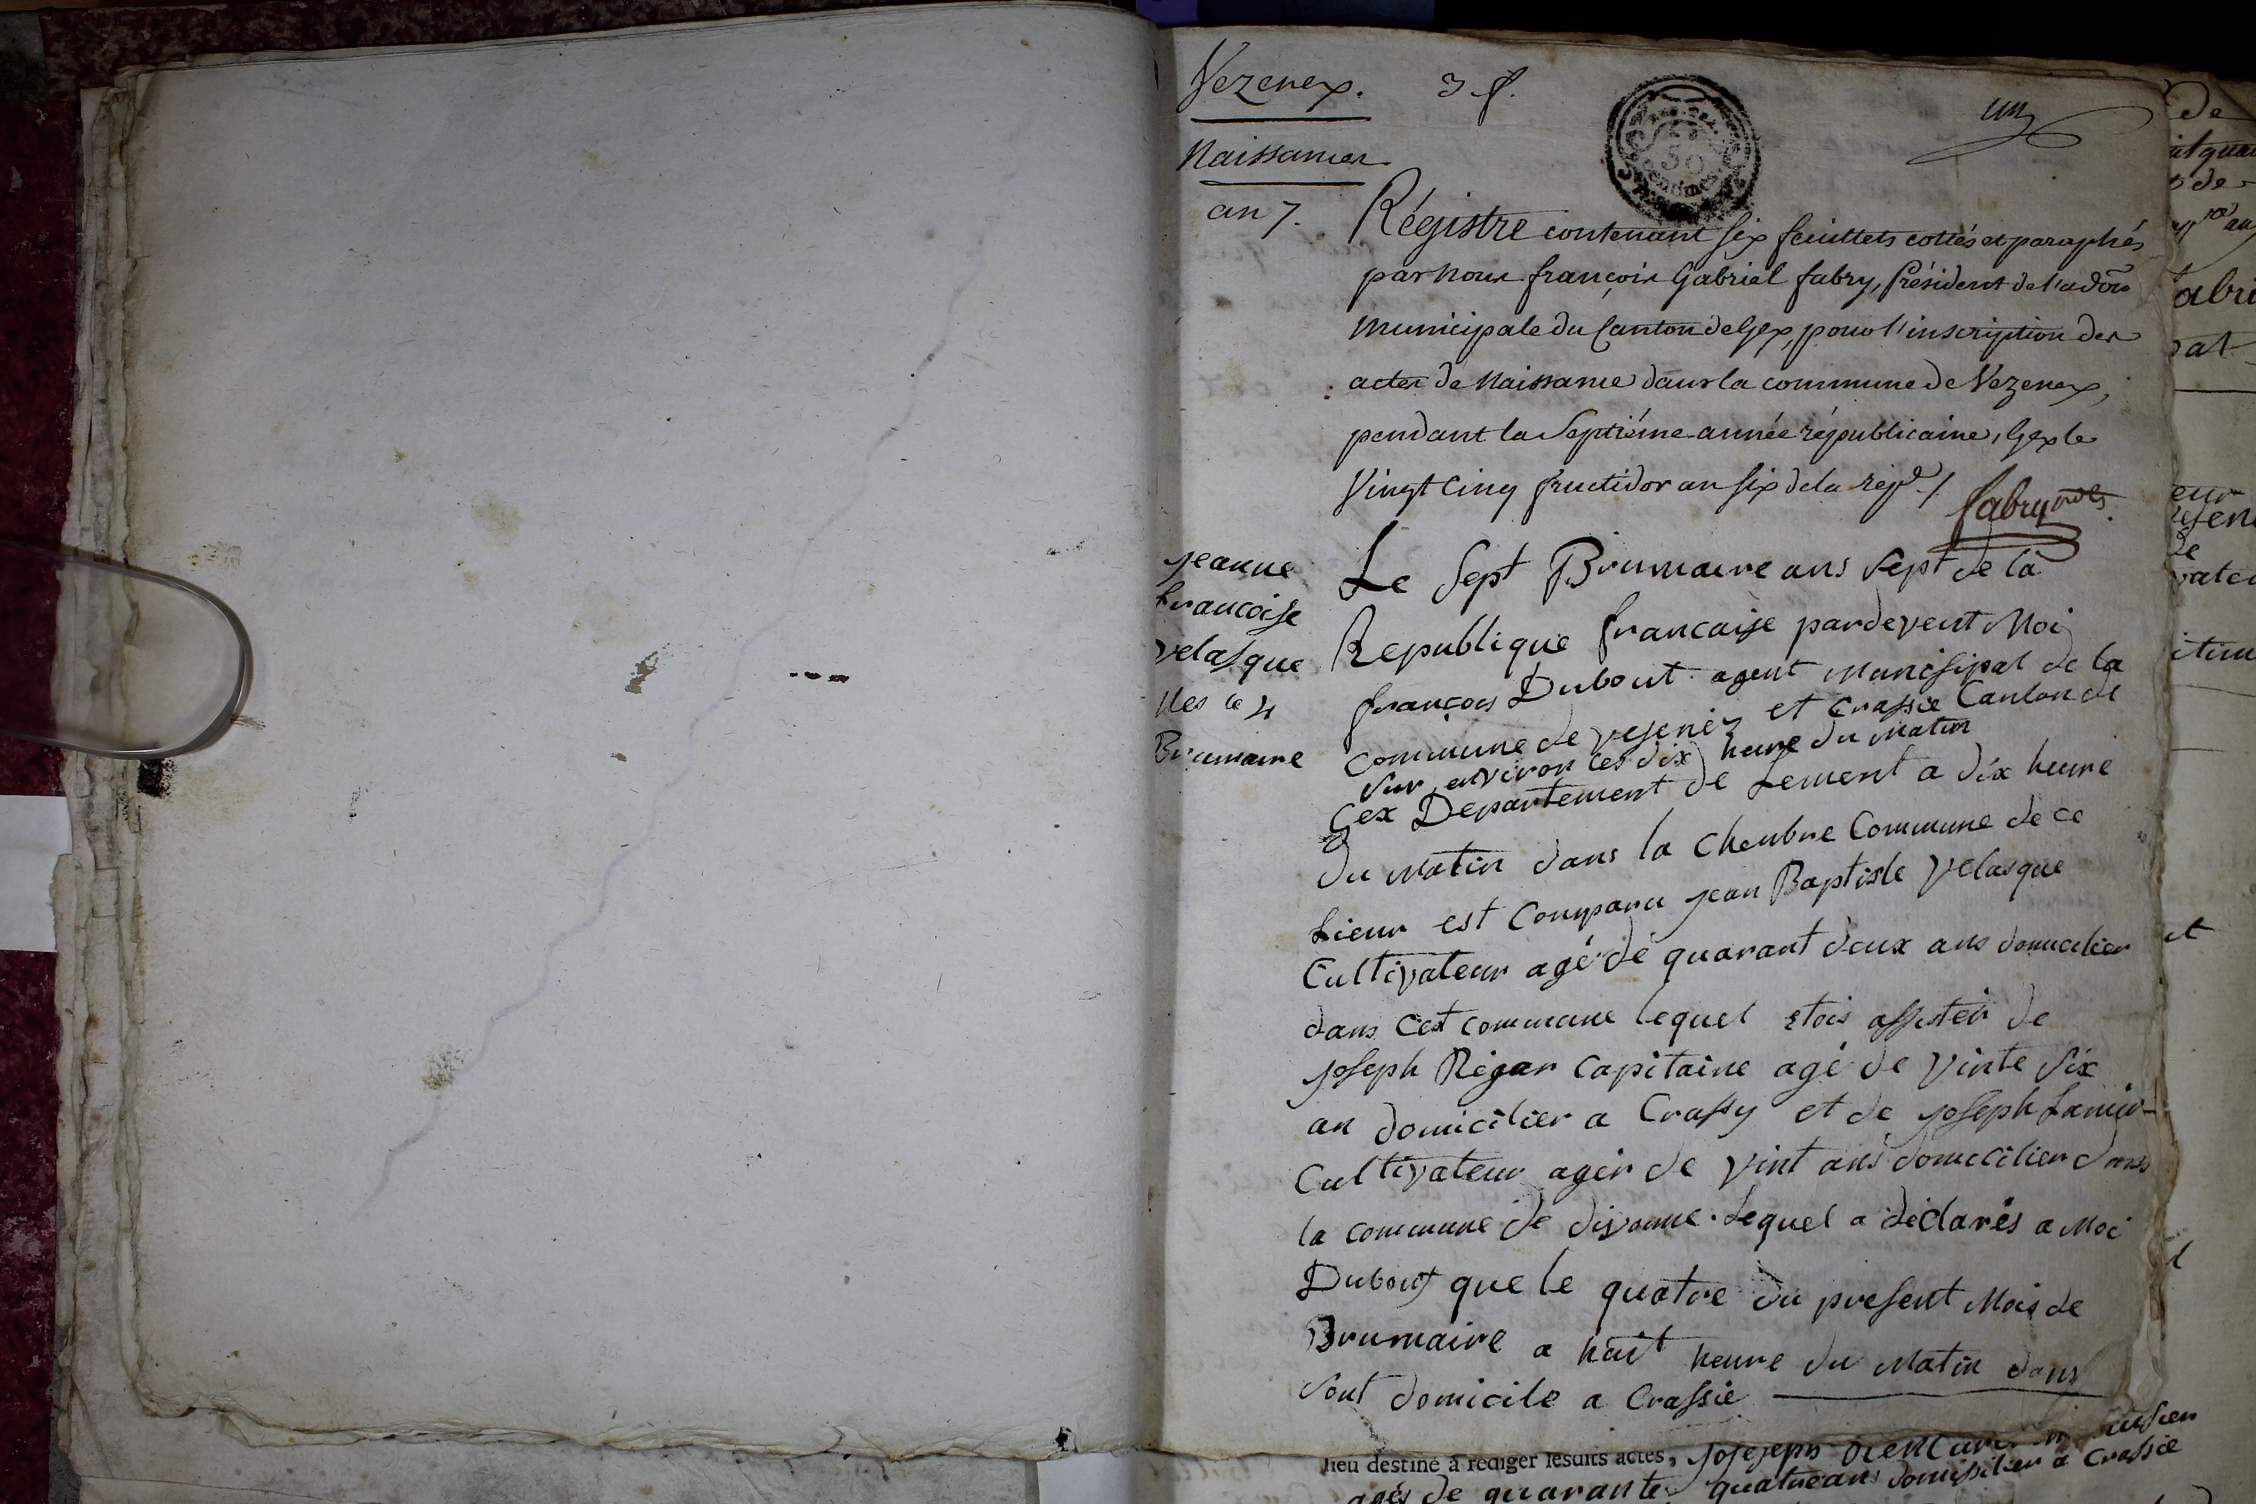 Vezenex. 3 f.
un
Naissances
an 7.
50
centimes
Régistre contenant six feuillets cottés et paraphés
par nous françois Gabriel fabry, Président de l'adōn
Municipale du Canton de Gex, pour l'inscription des
actes de Naissance dans la commune de Vezenex,
pendant la Septiéme année républicaine, Gex le
Vingt Cinq fructidor an six de la rép.e /.
fabry
Jeanne
francoise
velasque
Nes le 4
Brumaire
Le Sept Brumaire ans sept de la
Republique francaise pardevent Moi
françois Dubout agent Municipal de la
Commune de vesenex et Crassie Canton de
Sur environ les dix heure du Matin
Gex Departement de Lement a dix heure
du Matin dans la Chembre Commune de ce
Lieur est Comparu jean Baptiste Velasque
Cultivateur agé de quarant deux ans domicilier
dans Cest commune lequel etois assistér de
joseph Régar Capitaine agé de vinte six
an domicilier a Crassy et de joseph
Cultivateur agér de vint ans domicilier dans
la commune de divonne. Lequel a déclarés a Moi
Dubout que le quatre du present Mois de
Brumaire a huit heure du Matin dans
sont domicile a Crassie
lieu destiné à rédiger lesdits actes,
agés de quarante quatre ans domissilier a Crassie